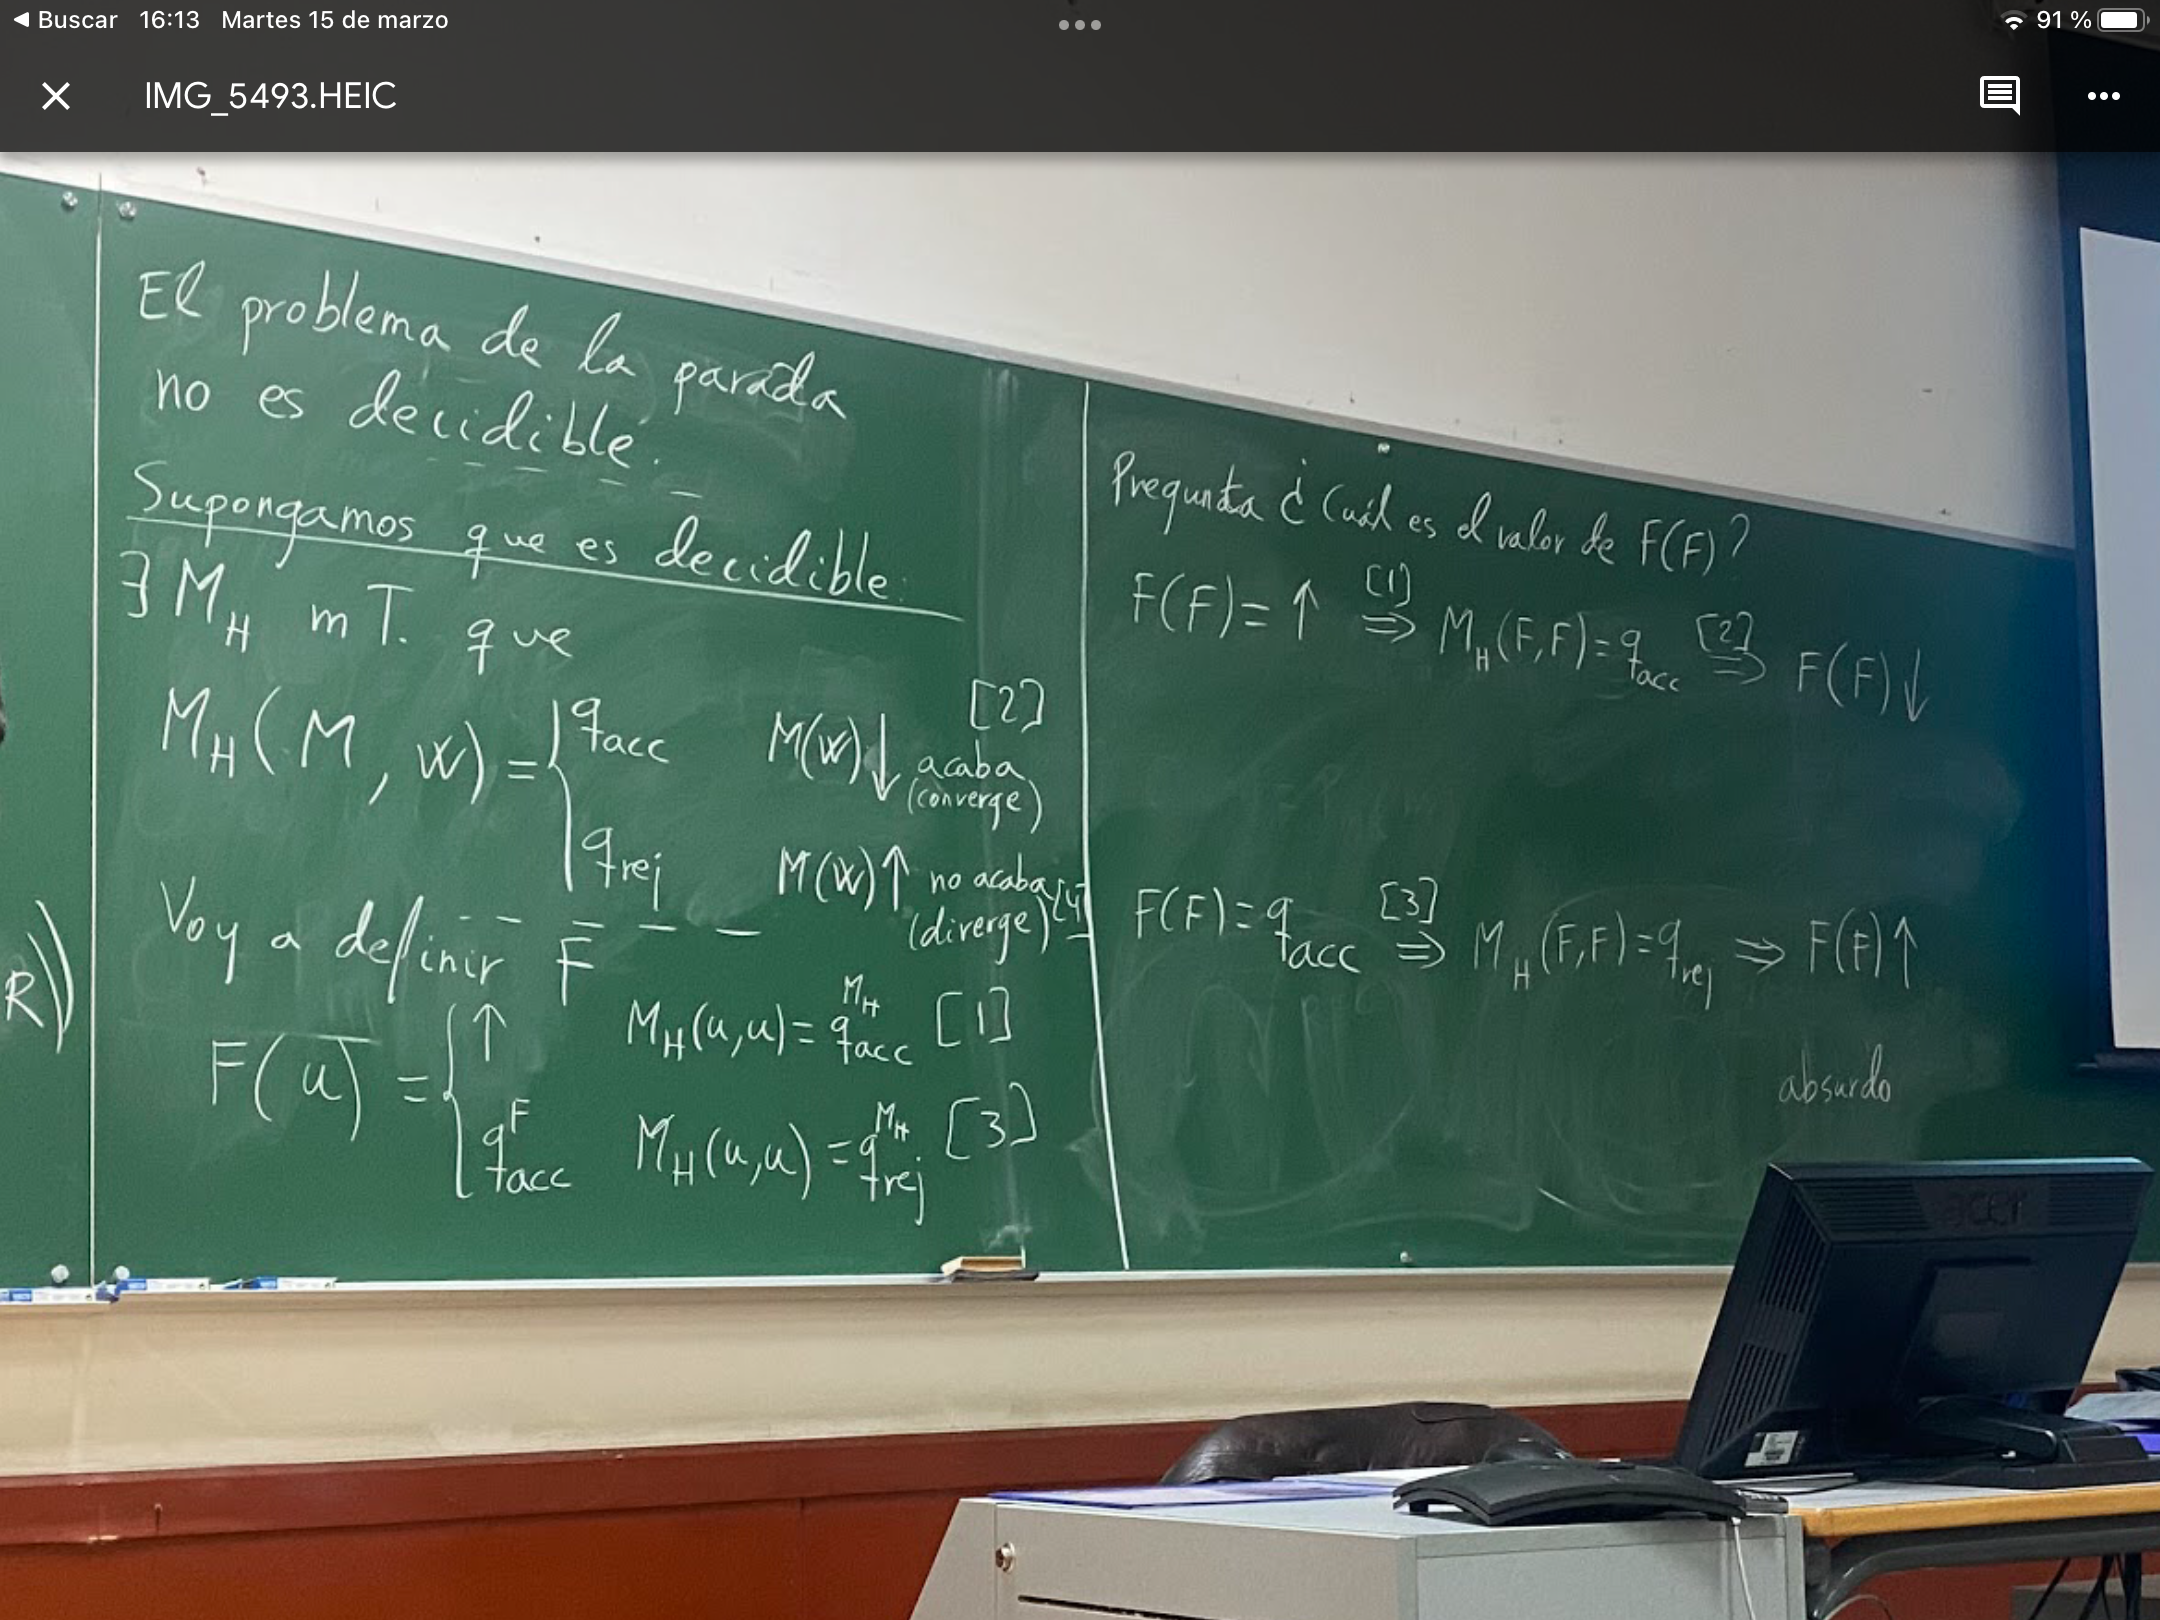 Buscar 16:13 Martes 15 de marzo
91 %
IMG_5493.HEIC
El problema de la parada
no es decidible.
Supongamos que es decidible.
∃ M_H mT. que
M_H(M, w) = { q_acc M(w)↓ acaba (converge) [2]
q_rej M(w)↑ no acaba (diverge) [4]
Voy a definir F
F(u) = { ↑ M_H(u,u) = q_acc^{M_H} [1]
q_acc^F M_H(u,u) = q_rej^{M_H} [3]
R))
Pregunta ¿Cuál es el valor de F(F)?
F(F) = ↑ [1] ⇒ M_H(F,F) = q_acc [2] ⇒ F(F)↓
F(F) = q_acc [3] ⇒ M_H(F,F) = q_rej ⇒ F(F)↑
absurdo
acer